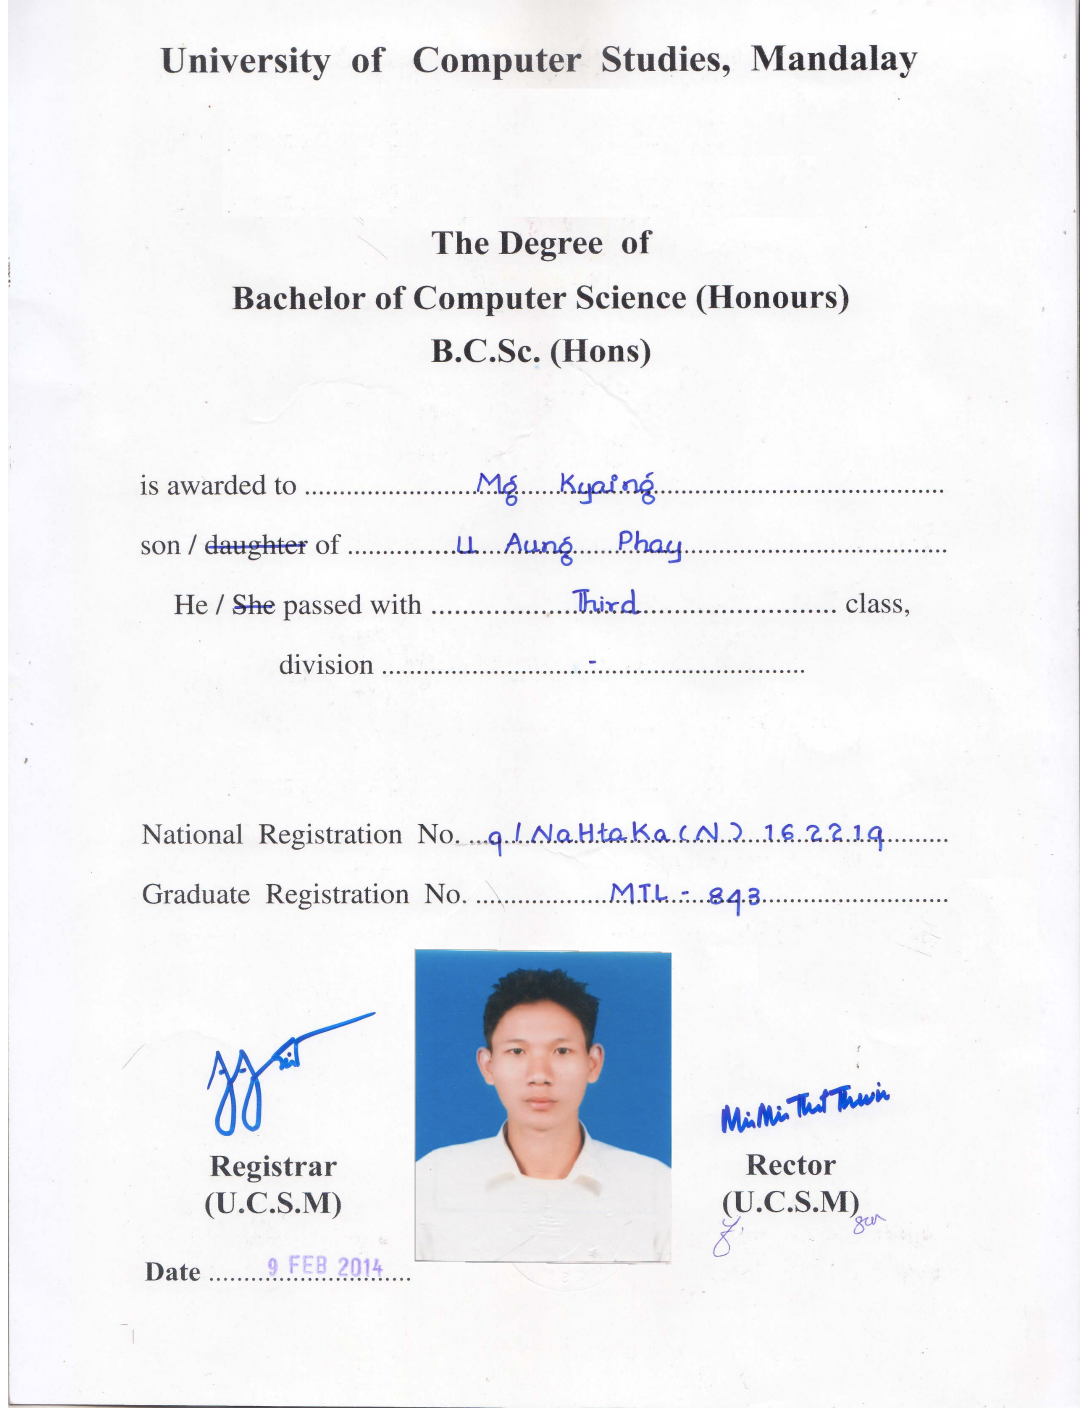 University of Computer Studies, Mandalay
The Degree of
Bachelor of Computer Science (Honours)
B.C.Sc. (Hons)
is awarded to ........................Mg......Kyaing.........................................
son / daughter of ...............U....Aung......Phay......................................
He / She passed with ....................Third............................ class,
division .............................-..............................
National Registration No. ...9/NaHtaKa(N) 162219.........
Graduate Registration No. ...................MTL - 843...........................
Registrar
(U.C.S.M)
Mi Mi Thet Thwin
Rector
(U.C.S.M)
Date ........9 FEB 2014....